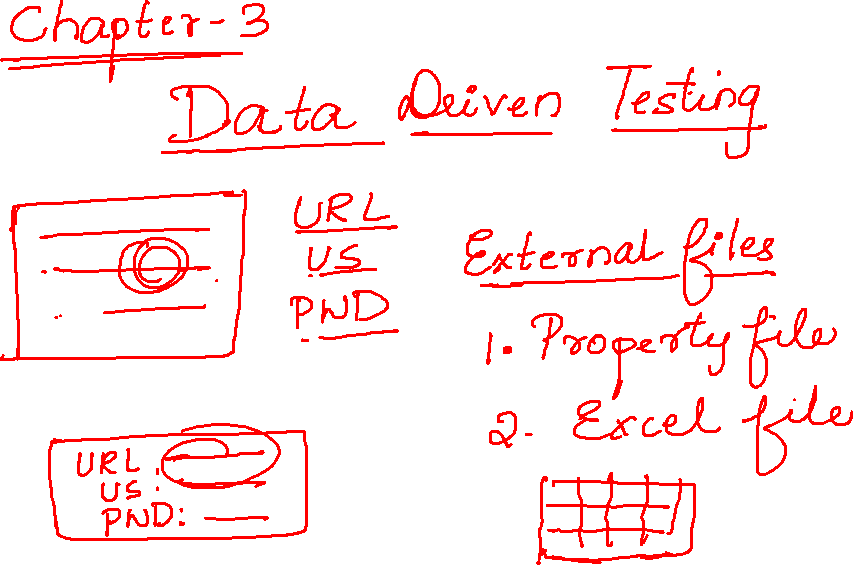 Chapter-3
Data Driven Testing
URL
US
PWD
External files
1. Property file
2. Excel file
URL:
US:
PWD: